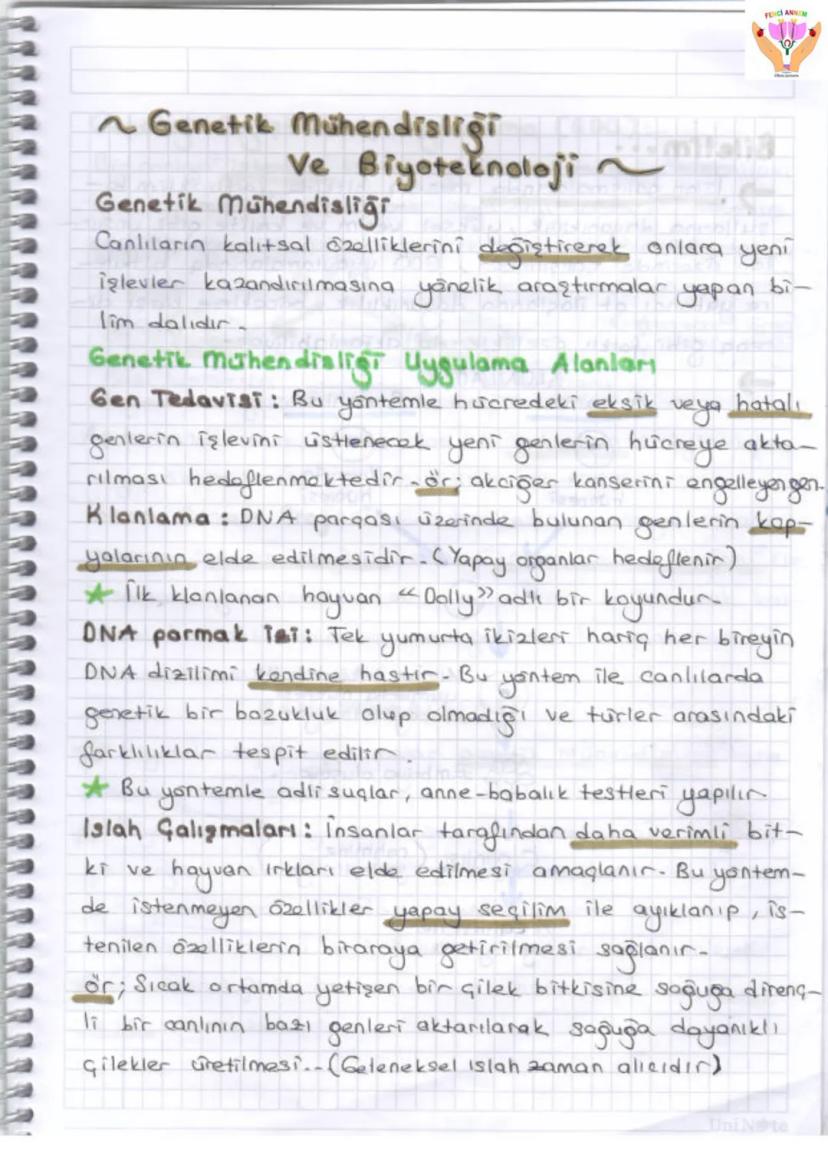 FENCİ ANNEM
~ Genetik Mühendisliği
Ve Biyoteknoloji ~
Genetik Mühendisliği
Canlıların kalıtsal özelliklerini değiştirerek onlara yeni
işlevler kazandırılmasına yönelik araştırmalar yapan bi-
lim dalıdır.
Genetik Mühendisliği Uygulama Alanları
Gen Tedavisi: Bu yöntemle hücredeki eksik veya hatalı
genlerin işlevini üstlenecek yeni genlerin hücreye akta-
rılması hedeflenmektedir. ör; akciğer kanserini engelleyen gen.
Klonlama: DNA parçası üzerinde bulunan genlerin kop-
yalarının elde edilmesidir. (Yapay organlar hedeflenir)
★ İlk klonlanan hayvan "Dolly" adlı bir koyundur.
DNA parmak izi: Tek yumurta ikizleri hariç her bireyin
DNA dizilimi kendine hastır. Bu yöntem ile canlılarda
genetik bir bozukluk olup olmadığı ve türler arasındaki
farklılıklar tespit edilir.
★ Bu yöntemle adli suçlar, anne-babalık testleri yapılır
Islah Çalışmaları: İnsanlar tarafından daha verimli bit-
ki ve hayvan ırkları elde edilmesi amaçlanır. Bu yöntem-
de istenmeyen özellikler yapay seçilim ile ayıklanıp, is-
tenilen özelliklerin biraraya getirilmesi sağlanır.
ör; Sıcak ortamda yetişen bir çilek bitkisine soğuğa direnç-
li bir canlının bazı genleri aktarılarak soğuğa dayanıklı
çilekler üretilmesi.. (Geleneksel ıslah zaman alıcıdır)
UniNote